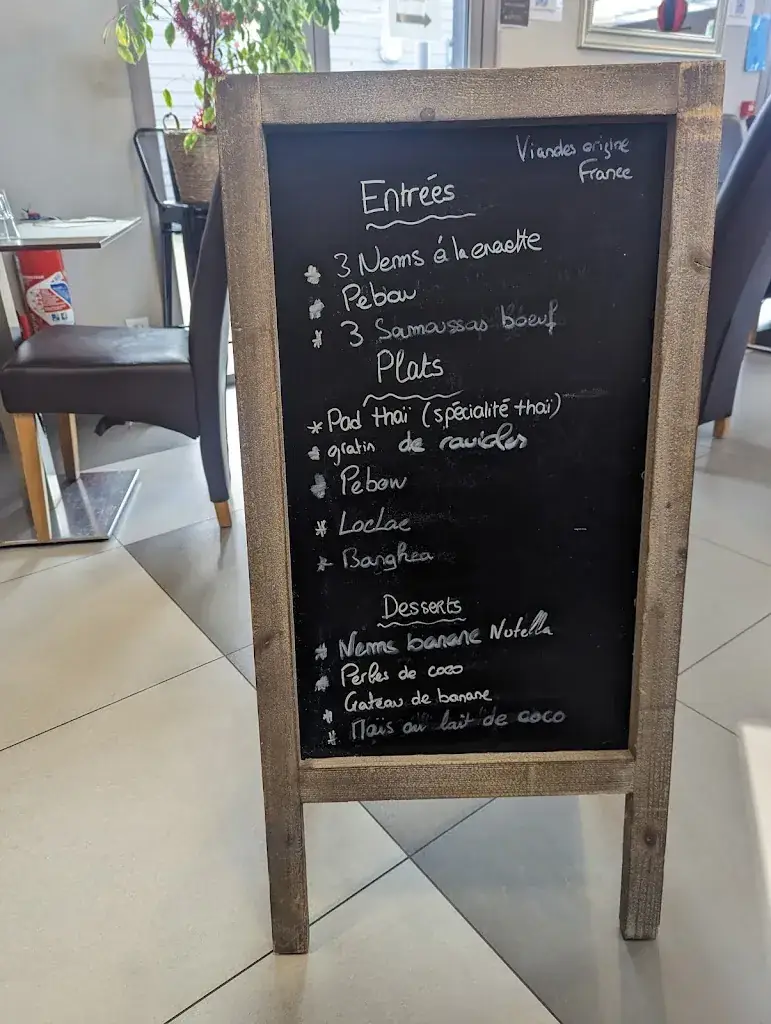 Viandes origine
France
Entrées
* 3 Nems à la crevette
* Pébou
* 3 Samoussas boeuf
Plats
* Pad thaï (spécialité thaï)
* gratin de ravioles
* Pebow
* Loclac
* Banghea
Desserts
* Nems banane Nutella
* Perles de coco
* Gateau de banane
* Maïs au lait de coco